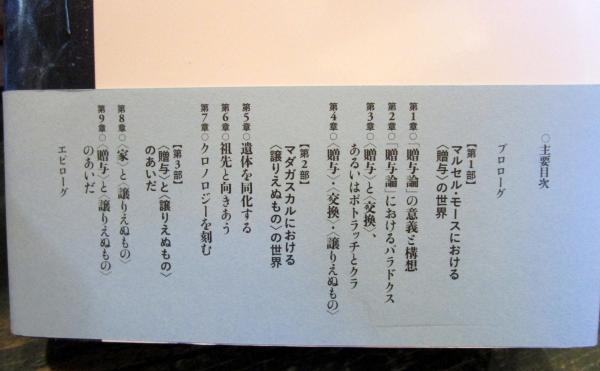 ○主要目次
プロローグ
【第1部】
マルセル・モースにおける
〈贈与〉の世界
第1章○「贈与論」の意義と構想
第2章○「贈与論」におけるパラドクス
第3章○〈贈与〉と〈交換〉、
あるいはポトラッチとクラ
第4章○〈贈与〉・〈交換〉・〈譲りえぬもの〉
【第2部】
マダガスカルにおける
〈譲りえぬもの〉の世界
第5章○遺体を同化する
第6章○祖先と向きあう
第7章○クロノロジーを刻む
【第3部】
〈贈与〉と〈譲りえぬもの〉
のあいだ
第8章○〈家〉と〈譲りえぬもの〉
第9章○〈贈与〉と〈譲りえぬもの〉
のあいだ
エピローグ